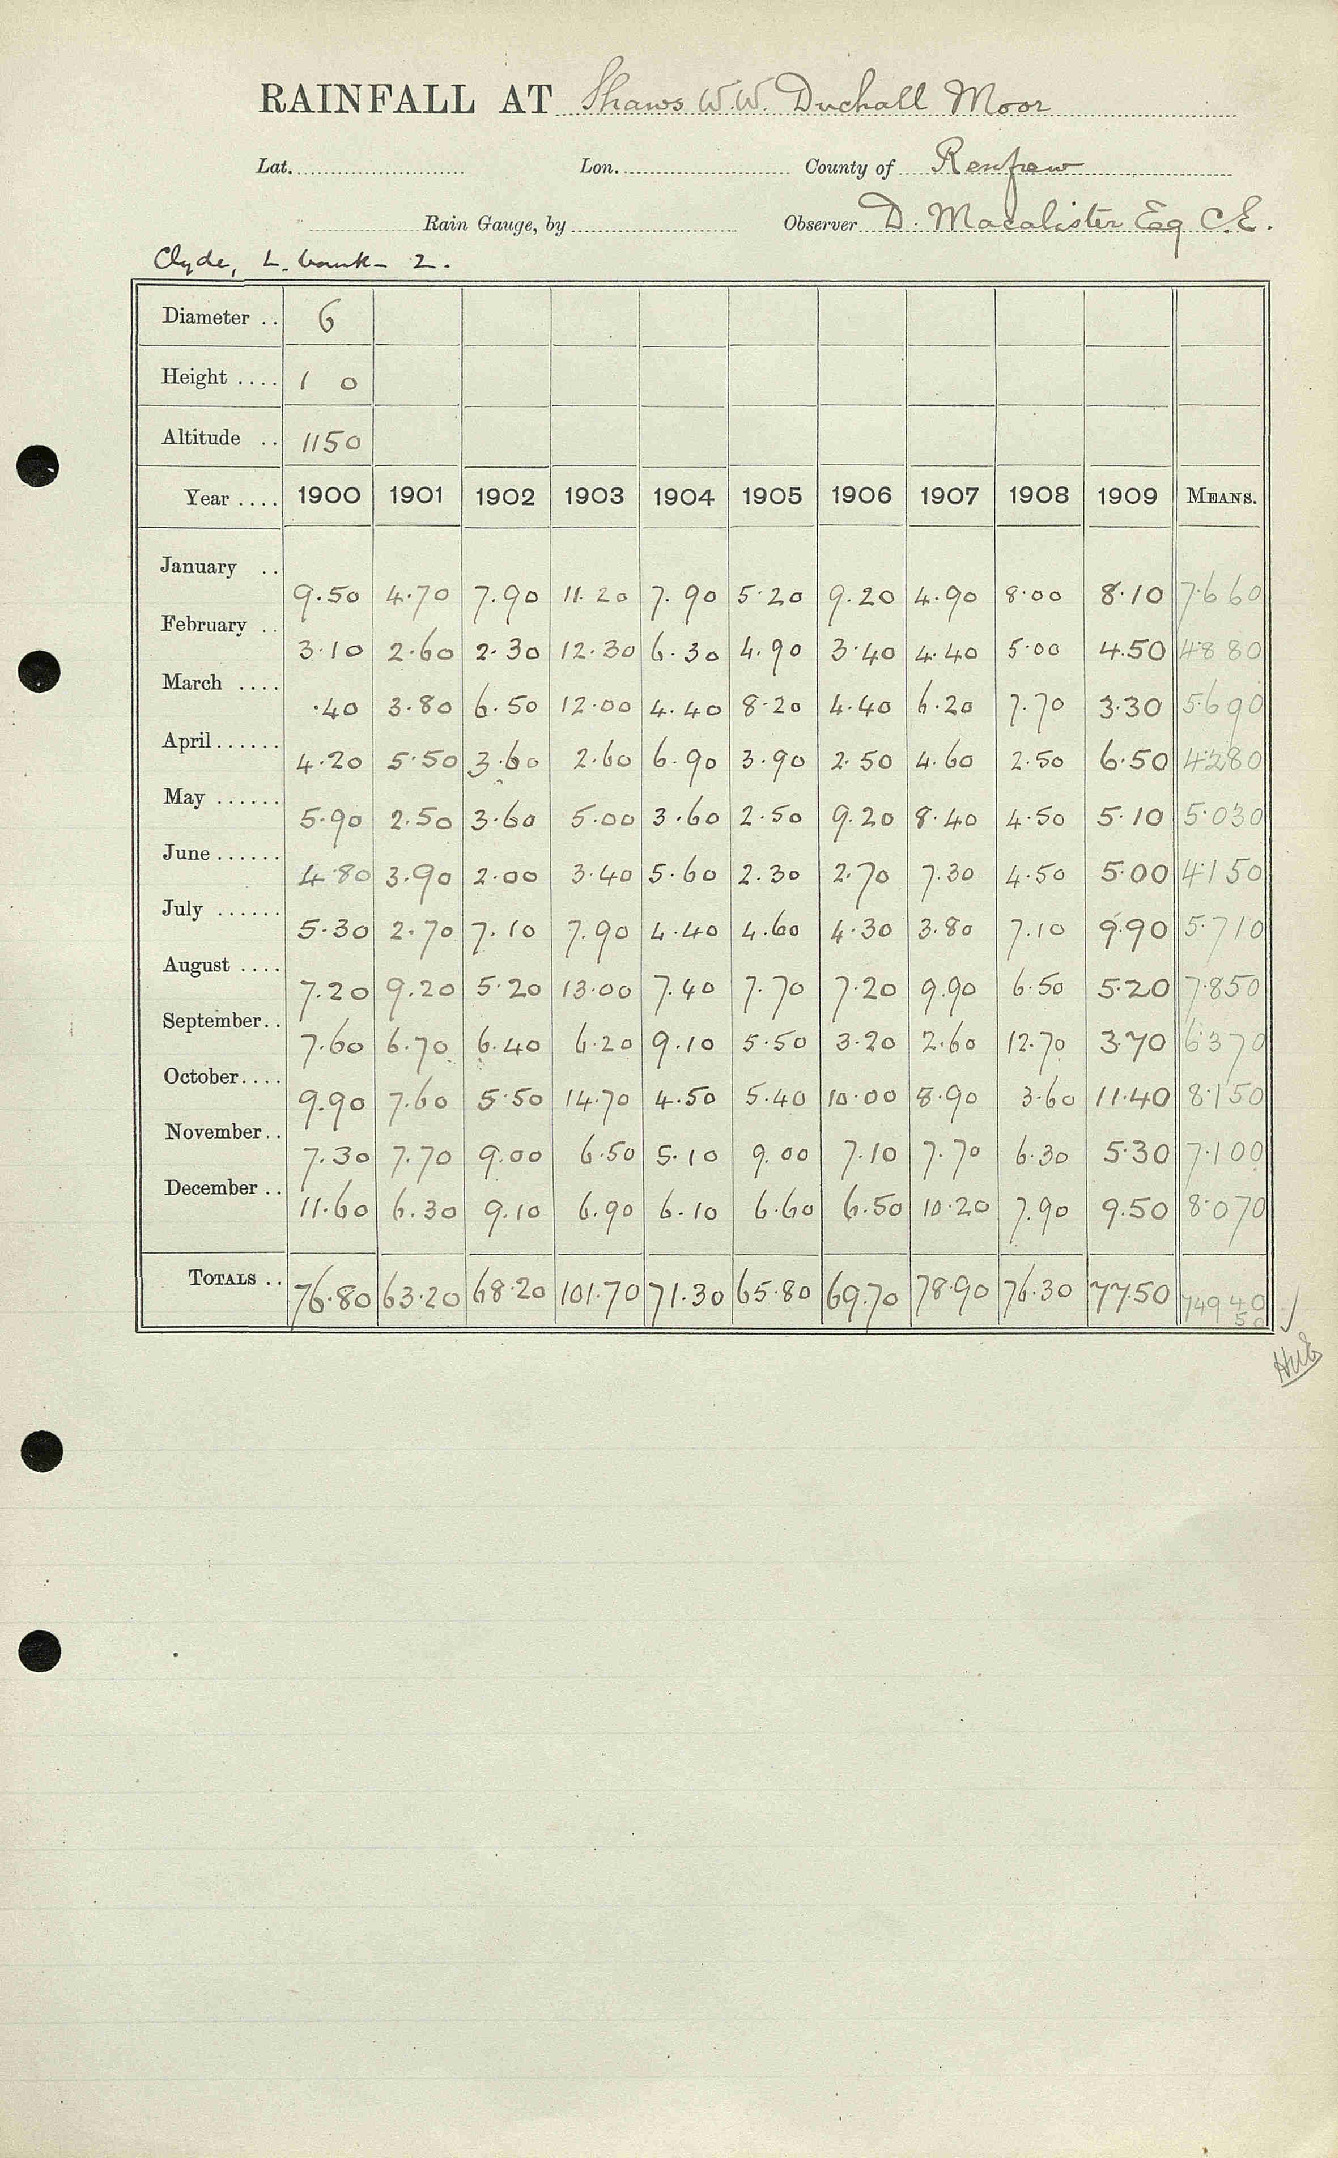 RAINFALL AT Shaws W.W. Duchall Moor
Lat. Lon. County of Renfrew
Rain Gauge, by Observer D. Macalister Esq C.E.
Clyde, L. bank 2.
Diameter .. 6
Height .... 1 0
Altitude .. 1150
Year .... 1900 1901 1902 1903 1904 1905 1906 1907 1908 1909 MEANS.
January .. 9.50 4.70 7.90 11.20 7.90 5.20 9.20 4.90 8.00 8.10 7.660
February .. 3.10 2.60 2.30 12.30 6.30 4.90 3.40 4.40 5.00 4.50 4880
March .... .40 3.80 6.50 12.00 4.40 8.20 4.40 6.20 7.70 3.30 5.690
April...... 4.20 5.50 3.60 2.60 6.90 3.90 2.50 4.60 2.50 6.50 4.280
May ...... 5.90 2.50 3.60 5.00 3.60 2.50 9.20 8.40 4.50 5.10 5.030
June...... 4.80 3.90 2.00 3.40 5.60 2.30 2.70 7.30 4.50 5.00 4.150
July ...... 5.30 2.70 7.10 7.90 4.40 4.60 4.30 3.80 7.10 9.90 5.710
August .... 7.20 9.20 5.20 13.00 7.40 7.70 7.20 9.90 6.50 5.20 7.850
September.. 7.60 6.70 6.40 6.20 9.10 5.50 3.20 2.60 12.70 3.70 6.370
October.... 9.90 7.60 5.50 14.70 4.50 5.40 10.00 8.90 3.60 11.40 8.150
November.. 7.30 7.70 9.00 6.50 5.10 9.00 7.10 7.70 6.30 5.30 7.100
December .. 11.60 6.30 9.10 6.90 6.10 6.60 6.50 10.20 7.90 9.50 8.070
TOTALS .. 76.80 63.20 68.20 101.70 71.30 65.80 69.70 78.90 76.30 77.50 749 40
50